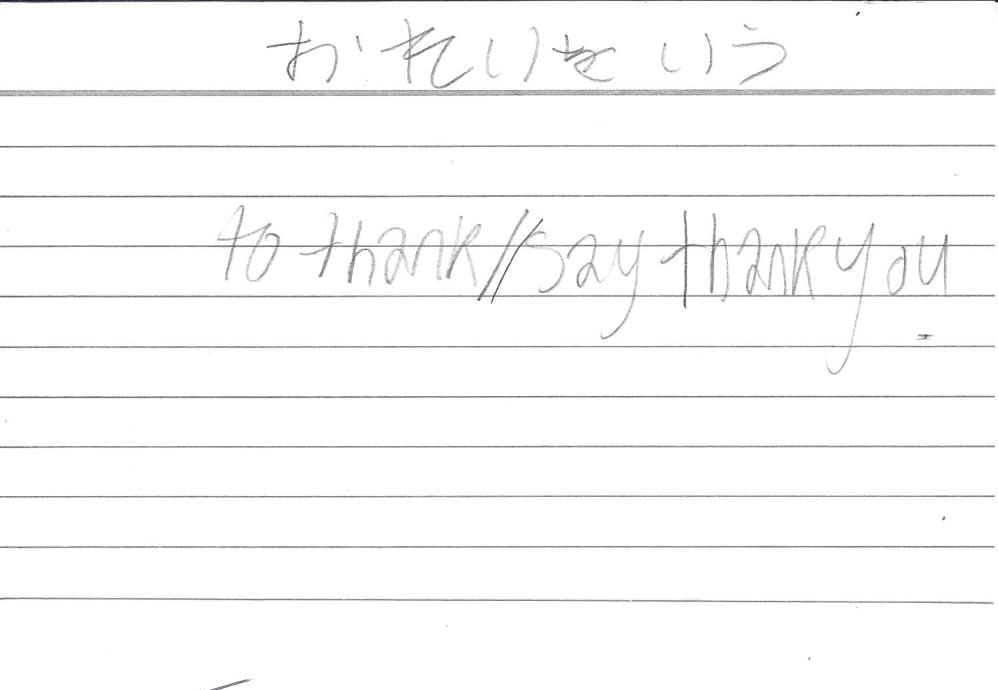 おれいをいう
to thank//say thank you